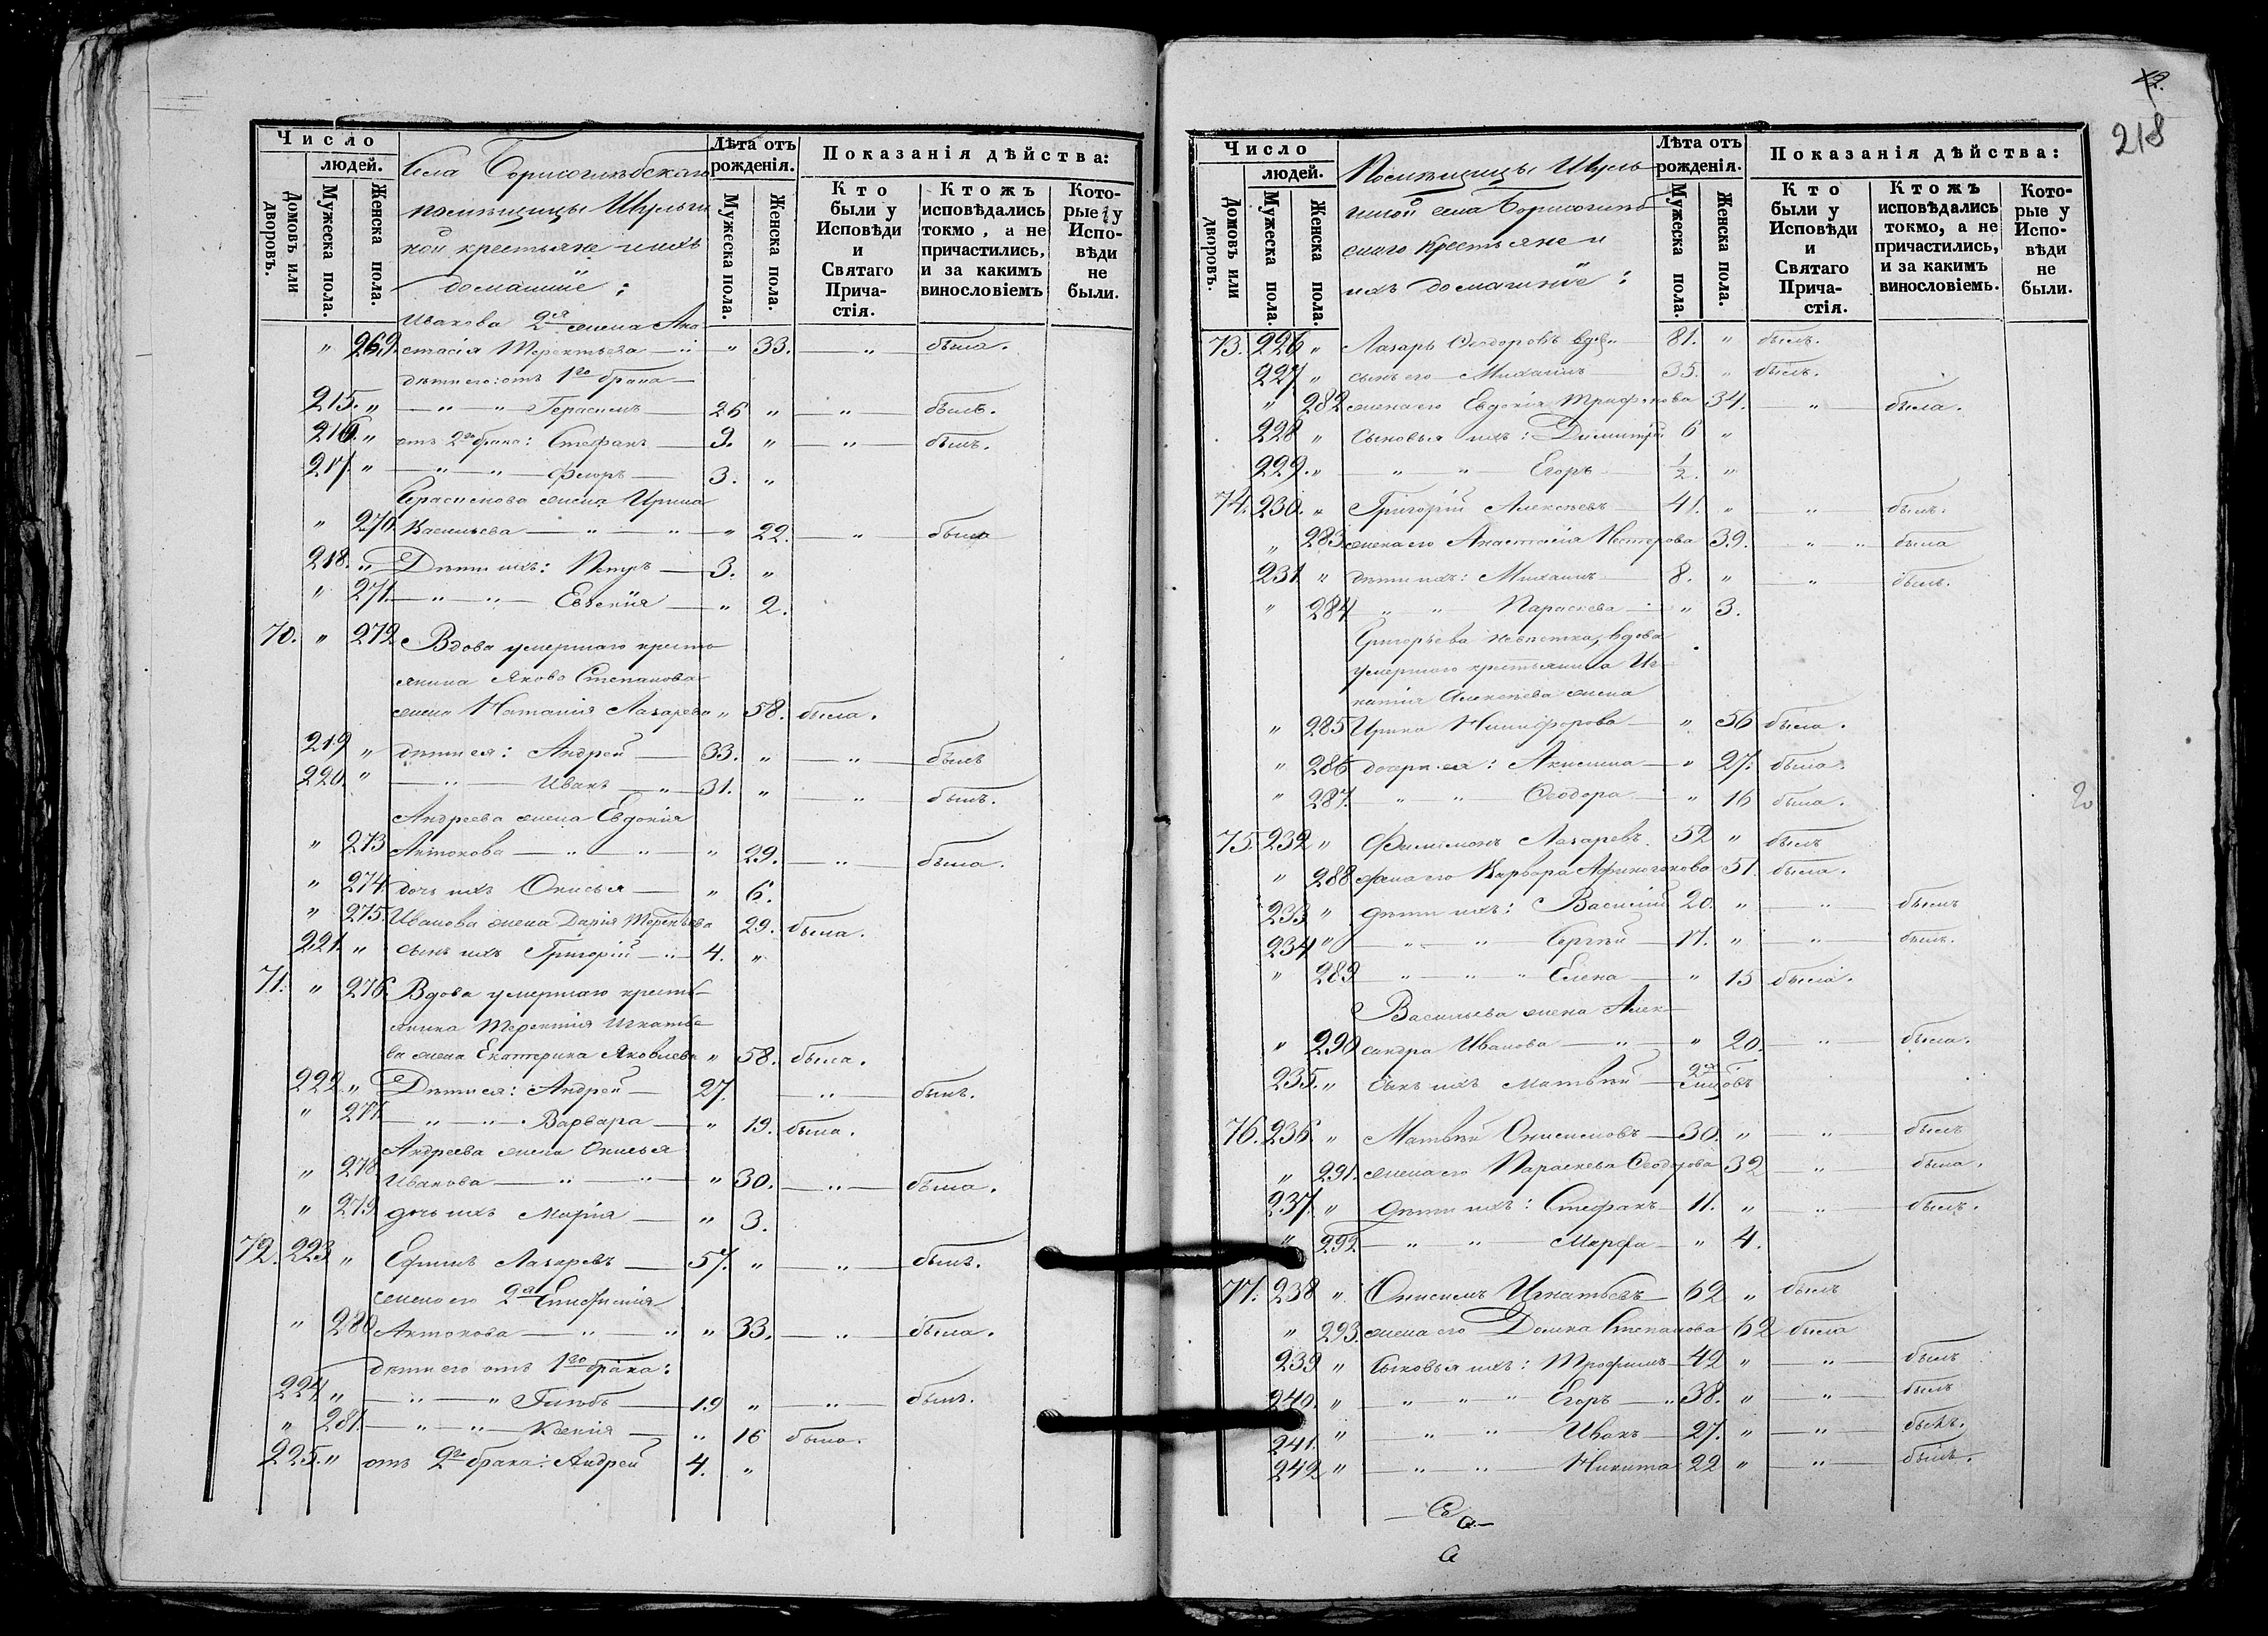 Число
людей.
Домовъ или дворовъ.
Мужеска пола.
Женска пола.
Села Борисоглѣбскаго
помѣщицы Шульги
ной крестьяне и ихъ
домашніе:
Лѣта отъ
рожденія.
Мужеска пола.
Женска пола.
Показанія дѣйства:
Кто
были у
Исповѣди
и
Святаго
Прича-
стія.
Ктожъ
исповѣдались
токмо, а не
причастились,
и за какимъ
винословіемъ
Кото-
рые у
Испо-
вѣди
не
были.
Иванова 2я жена Ана
" 269. стасія Терентьева — " — " 33. — " — была.
дѣти его: отъ 1го брака —
215. " — " — " Герасимъ — 26 " — " — былъ.
216. " отъ 2го брака: Стефанъ — 9. " — " — былъ.
217. " — " — " — Флоръ — 3. "
Герасимова жена Ирина
" 270. Васильева — " — " — " 22. — " — была
218. " Дѣти ихъ: Петръ — 3. "
" 271. — " — " — Евгенія — " 2.
70. " 272 Вдова умершаго кресть
янина Якова Степанова
жена Наталія Лазарева " 58. была.
219 " дѣти ея: Андрей — 33. " — " — былъ
220. " — " — Иванъ — " — 31. " — " — былъ.
Андреева жена Евдокія
" 273 Антонова — " — " — " 29. — " — была.
" 274 дочь ихъ Онисья — " 6.
" 275. Иванова жена Дарія Терентьева 29. была.
221. " сынъ ихъ Григорій — " — 4. "
71. " 276. Вдова умершаго кресть-
янина Терентія Игнатье
ва жена Екатерина Яковлева " 58. была.
222 " Дѣти ея: Андрей — 27. — " — былъ.
" 277. — " — " — Варвара — " 19. была.
Андреева жена Онисья
" 278 Иванова — " — " — " 30. — " — была.
" 279. дочь ихъ Марія — " 3.
72. 223 " Ефимъ Лазаревъ — 57. " — " — былъ.
жена его 2я Епифинія
" 280 Антонова — " — " " 33. — " — была.
дѣти его отъ 1го брака:
224 " — " — " Глѣбъ — 19 " — " — былъ.
" 281. — " — " — Ксенія — " 16 была.
225. " отъ 2го брака: Андрей 4. "
218
Число
людей.
Домовъ или дворовъ.
Мужеска пола.
Женска пола.
Помѣщицы Шуль
гиной села Борисоглѣб
скаго крестьяне и
ихъ домашніе:
Лѣта отъ
рожденія.
Мужеска пола.
Женска пола.
Показанія дѣйства:
Кто
были у
Исповѣди
и
Святаго
Прича-
стія.
Ктожъ
исповѣдались
токмо, а не
причастились,
и за какимъ
винословіемъ.
Кото-
рые у
Испо-
вѣди
не
были.
73. 226 " Лазарь Ѳеодоровъ вдовъ 81. " былъ.
227 " сынъ его — Михаилъ — 35. " былъ.
" 282 жена его Евдокія Трифонова 34. — " — была.
228 " Сыновья ихъ: Димитрій 6 "
229. " — " " — Егоръ — ½. "
74. 230. " Григорій Алексѣевъ — 41. " " былъ.
" 283 жена его Анастасія Нестерова 39. — " " была
231 " дѣти ихъ: Михаилъ — 8. " — " былъ.
" 284 " " Параскева — " 3.
Григорьева невѣстка, вдова
умершаго крестьянина Иг-
натія Алексѣева жена
" 285 Ирина Никифорова — " 56 была.
" 286 дочери ея: Акилина — " 27. была.
" 287. " — " — Ѳеодора — " 16 была.
75. 232 " Филимонъ Лазаревъ. 52 " былъ
" 288 жена его Варвара Афиногенова 51. была.
233 " дѣти ихъ: Василій 20. " — " — былъ
234 " — " — " — Сергѣй — 17. " — " — былъ.
" 289 " — " — " Елена — " 15 была.
Васильева жена Алек-
" 290 сандра Иванова — " — " 20. — " — была.
235. " сынъ ихъ Матвѣй — 2хъ мѣсяцовъ
76. 236. " Матвѣй Онисимовъ — 30. " — " — былъ
" 291. жена его Параскева Ѳеодорова 32 — " — была.
237. " дѣти ихъ: Стефанъ 11. " — " — былъ.
" 292 — " — " — Марфа — " 4.
77. 238 " Онисимъ Игнатьевъ — 62 " былъ
" 293. жена его Домна Степанова 62 была
239 " Сыновья ихъ: Трофимъ — 42 " — " — былъ
240. " — " — " — " Егоръ — " 38. " — " — былъ
241. " — " " — Иванъ — 27. " — " — былъ.
242 " — " — " — Никита 22 " — " — былъ.